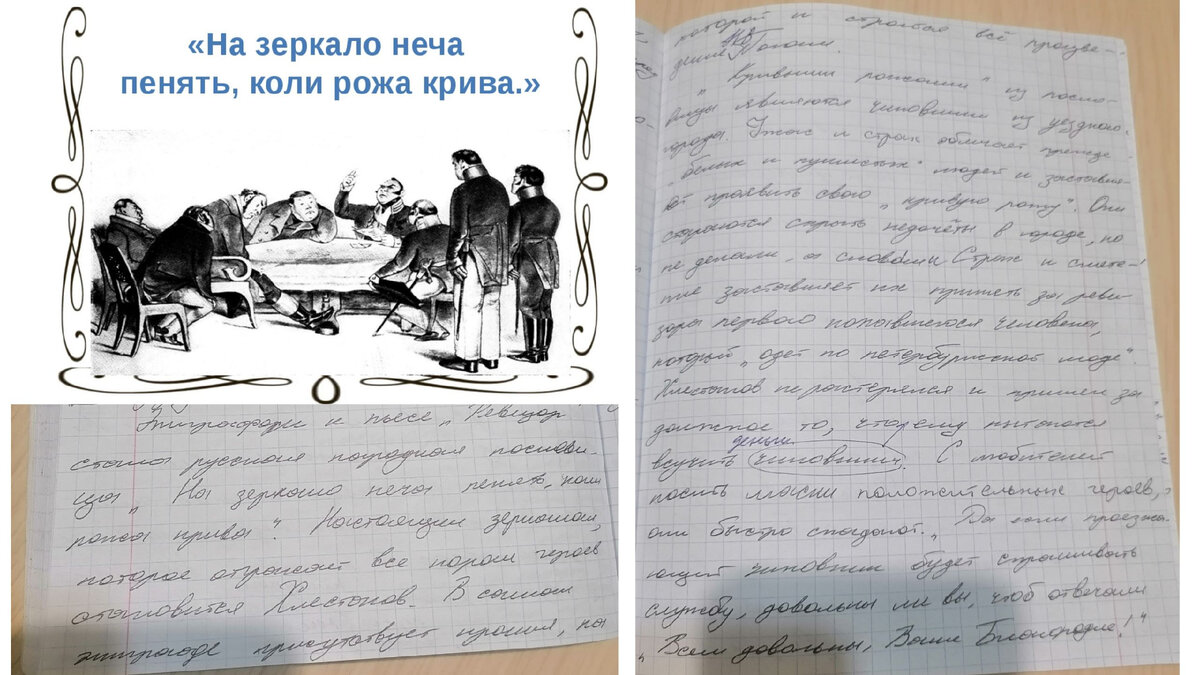 «На зеркало неча
пенять, коли рожа крива.»
Эпиграфом к пьесе „Ревизор
стала русская народная послови-
ца „На зеркало неча пенять, коли
рожа крива". Настоящим зеркалом,
которое отражает все пороки героев
становится Хлестаков. В самом
эпиграфе присутствует ирония, на
которой и строится всё произве-
дение Гоголя.
„Кривыми рожами" из посло-
вицы являются чиновники из уездного
города. Ужас и страх обличает прежде
„белых и пушистых" людей и заставля-
ют проявить свою „кривую рожу". Они
стараются скрыть недочёты в городе, но
не делами, а словами Страх и смяте-
ние заставляет их принять за реви-
зора первого попавшегося человека,
который „одет по петербургской моде".
Хлестаков не растерялся и принял за
должное то, что ему пытаются
деньги
всучить чиновники. С любителей
носить маски положительных героев,
они быстро спадают. „Да если проезжа-
ющий чиновник будет спрашивать
службу, довольны ли вы, чтоб отвечали
„Всем довольны, Ваше Благородие!"